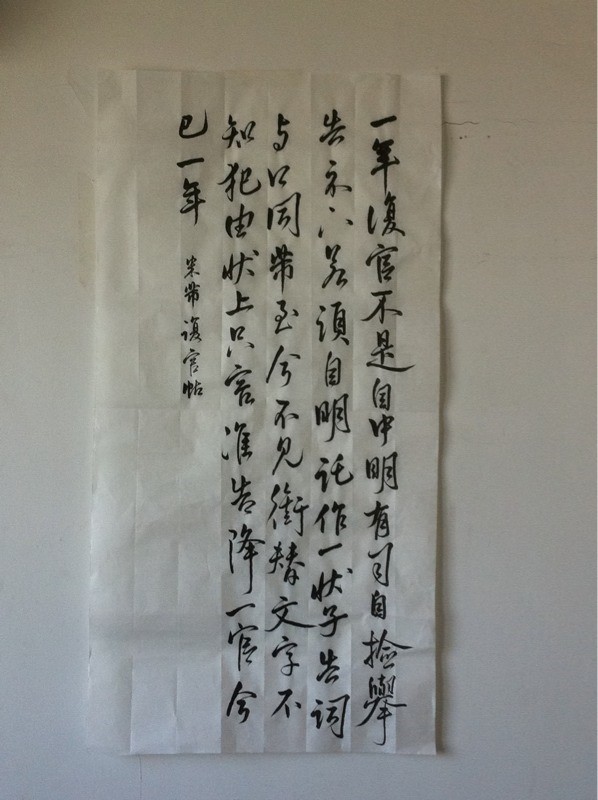 一年復官不是自申明有司自撿舉
告示下若須自明託作一狀子告詞
与口同芾至今不見衝替文字不
知犯由狀上只言准告降一官今
已一年
米芾復官帖